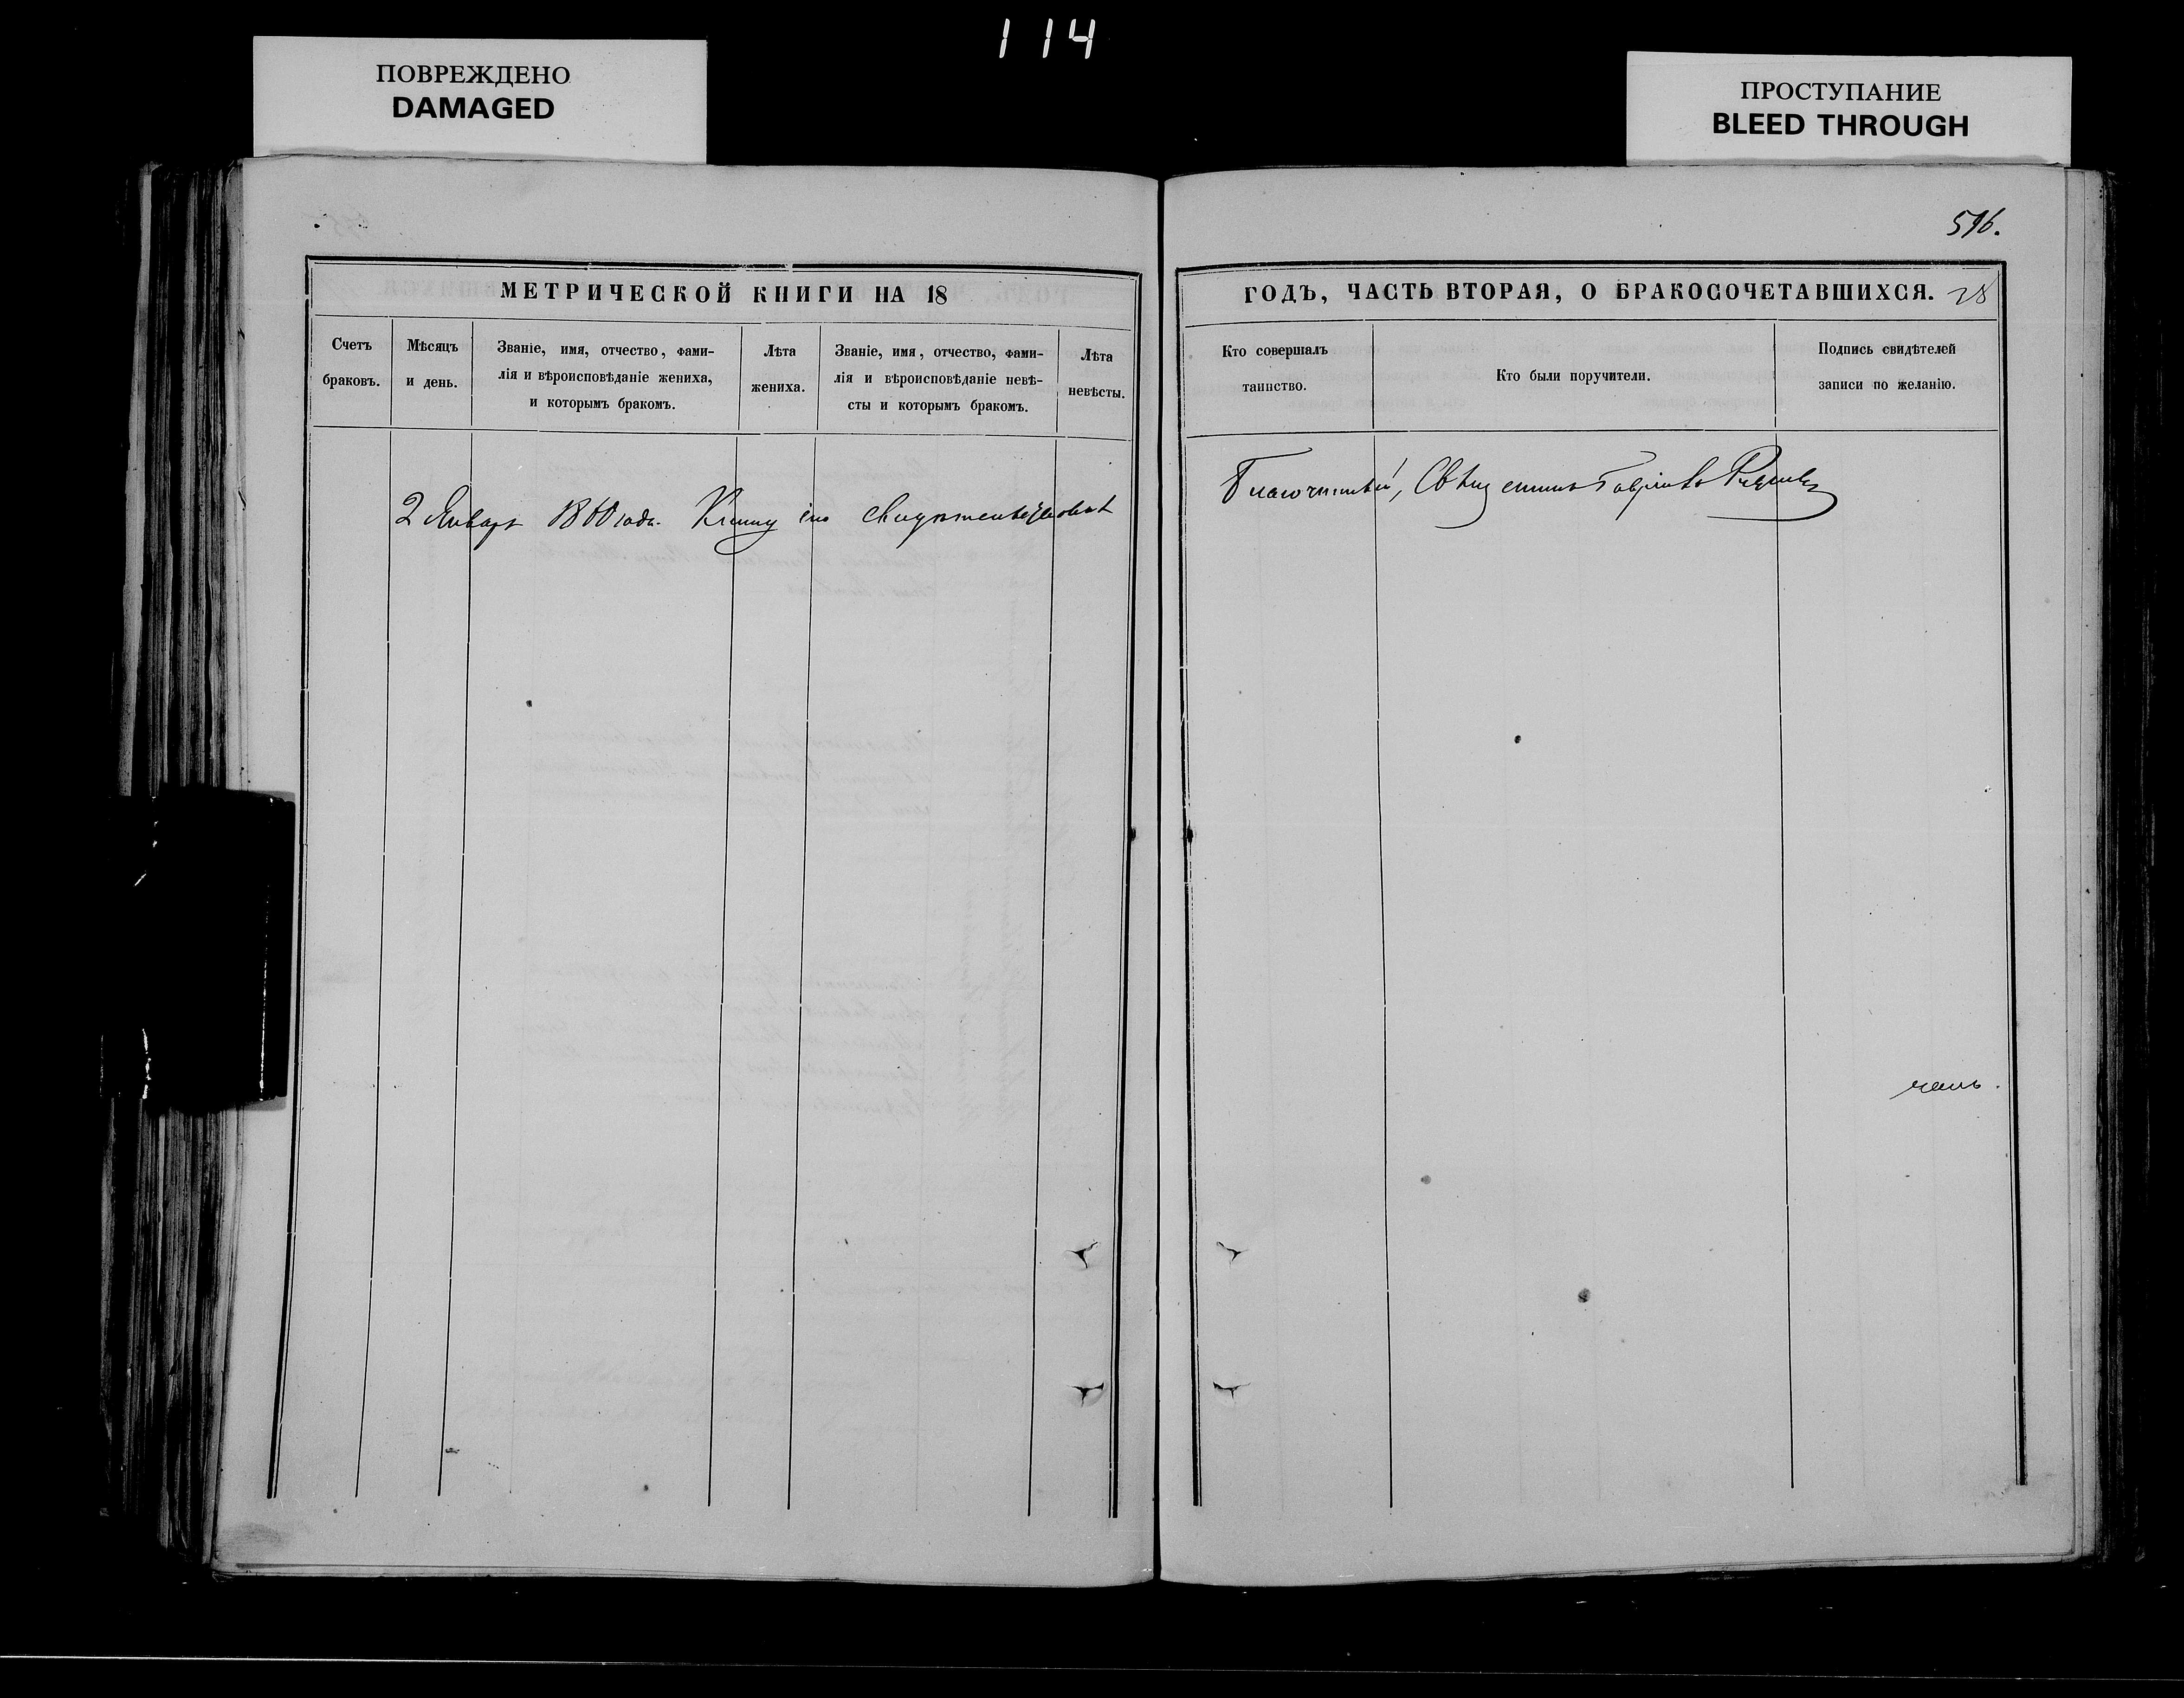 114
ПОВРЕЖДЕНО
DAMAGED
ПРОСТУПАНИЕ
BLEED THROUGH
596.
МЕТРИЧЕСКОЙ КНИГИ НА 18
Счетъ браковъ.
Мѣсяцъ и день.
Званіе, имя, отчество, фами-
лія и вѣроисповѣданіе жениха,
и которымъ бракомъ.
Лѣта жениха.
Званіе, имя, отчество, фами-
лія и вѣроисповѣданіе невѣ-
сты и которымъ бракомъ.
Лѣта невѣсты.
2 Января 1860 года. Книгу сію свидѣтельствовалъ
ГОДЪ, ЧАСТЬ ВТОРАЯ, О БРАКОСОЧЕТАВШИХСЯ. 28
Кто совершалъ
таинство.
Кто были поручители.
Подпись свидѣтелей
записи по желанію.
Благочинный, Священникъ Гавріилъ